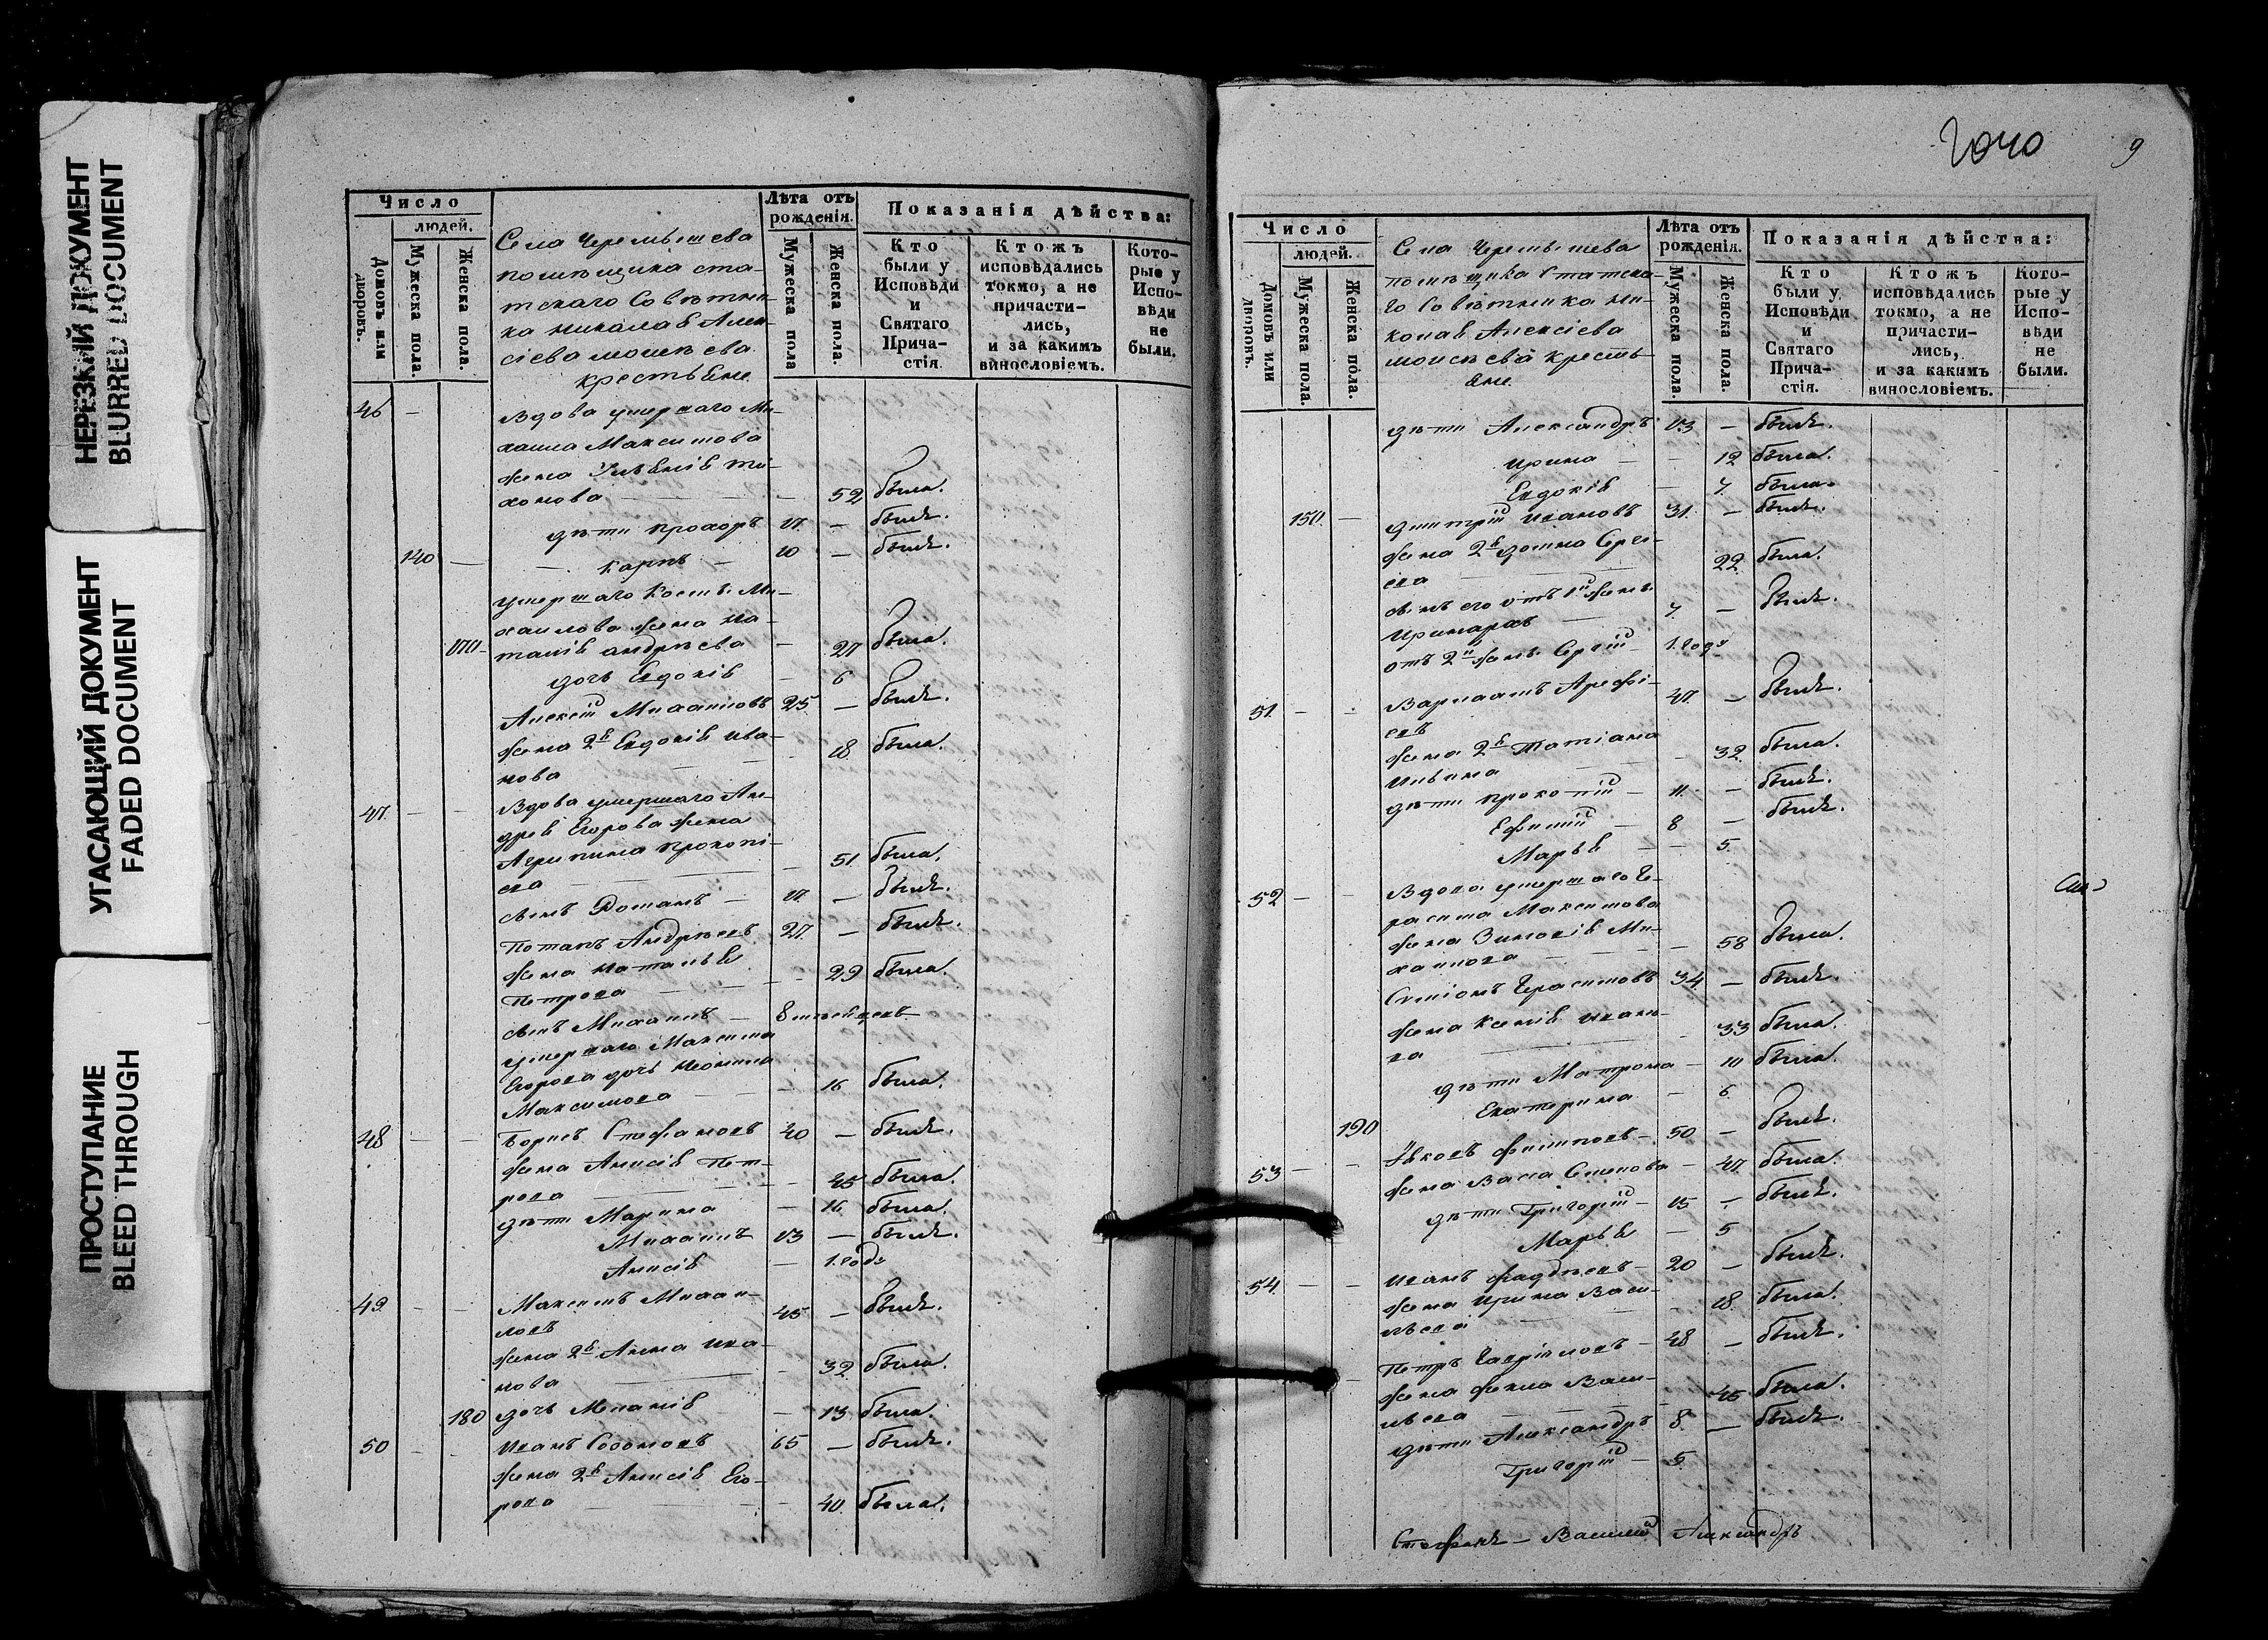 НЕРЕЗКИЙ ДОКУМЕНТ
BLURRED DOCUMENT
УГАСАЮЩИЙ ДОКУМЕНТ
FADED DOCUMENT
ПРОСТУПАНИЕ
BLEED THROUGH
Число
людей.
Домовъ или дворовъ.
Мужеска пола.
Женска пола.
Села Черемышева
помѣщика ста-
тскаго Совѣтни-
ка Николая Алек-
сіева
крестьяне
Лѣта отъ рожденія.
Мужеска пола
Женска пола.
Показанія дѣйства:
Кто были у Исповѣди и Святаго Прича-стія.
Ктожъ исповѣдались токмо, а не причасти-лись, и за какимъ винословіемъ.
Кото-рые у Испо-вѣди не были.
46 — Вдова умершаго Ми-
хаила Максимова
жена Ти-
хонова — 52 была.
дѣти Прохоръ 17 — былъ.
140 — Карпъ — 10 — былъ.
умершаго Конст. Ми-
хаилова жена На-
170 талія Андрѣева — 27 была.
дочь Евдокія — 6
Алексѣй Михаиловъ 25 — былъ.
жена 2я Евдокія Ива-
нова — 18 была.
47 — — Вдова умершаго Ан-
дрея Егорова жена
Агрипина Прокопі-
ева — 51 была.
сынъ Романъ — 17 — былъ.
Потапъ Андрѣевъ 27 — былъ.
жена Наталья
Петрова — 29 была.
сынъ Михаилъ — 8 мѣсяцевъ
умершаго Максима
Егорова дочь
Максимова — 16 была.
48 — — Борисъ Стефановъ 40 — былъ.
жена Анисія Пет-
рова — 45 была.
дѣти Марина — 16 была.
Михаилъ 13 — былъ.
Анисія — 1 годъ
49 — — Максимъ Михаи-
ловъ 45 — былъ.
жена 2я Анна Ива-
нова — 32 была.
180 дочь Меланія — 13 была.
50 — — Иванъ Софоновъ 65 — былъ.
жена 2я Анисія Его-
рова — 40 была.
2040
9
Число
людей.
Домовъ или дворовъ.
Мужеска пола.
Женска пола.
Села Черемышева
помѣщика Статска-
го Совѣтника Ни-
колая Алексіева
кресть-
яне
Лѣта отъ рожденія.
Мужеска пола.
Женска пола.
Показанія дѣйства:
Кто были у Исповѣди и Святаго Прича-стія.
Ктожъ исповѣдались токмо, а не причасти-лись, и за какимъ винословіемъ.
Кото-рые у Испо-вѣди не были.
дѣти Александръ 13 — былъ.
Ирина — 12 была.
Евдокія — 7 была.
150 — Димитрій Ивановъ 31 — былъ.
жена 2я Домна Сергі-
ева — 22 была.
сынъ его отъ 1й жены
Иринархъ — 7 — былъ.
отъ 2й жены Сергій 1 годъ
51 — — Варлаамъ Арефі-
евъ 47 — былъ.
жена 2я Татіана
Ильина — 32 была.
дѣти Прокопій — 11 — былъ.
Ефимій — 8 — былъ.
Марья — 5
52 — — Вдова умершаго Ге-
расима Максимова
жена Зиновія Ми-
хаилова — 58 была.
Симіонъ Герасимовъ 34 — былъ.
жена Ксенія Ивано-
ва — 33 была.
дѣти Матрона — 10 была.
Екатерина — 6
190
53 — — Яковъ Филиповъ — 50 — былъ.
жена Васса Семенова — 47 была.
дѣти Григорій — 15 — былъ.
Марья — 5
54 — — Иванъ Фаддѣевъ — 20 — былъ.
жена Ирина Васи-
льева — 18 была.
Петръ Гавриловъ — 48 — былъ.
жена Фекла Васи-
льева — 45 была.
дѣти Александръ 8 — былъ.
Григорій — 5
Стефанъ — Василій Александръ